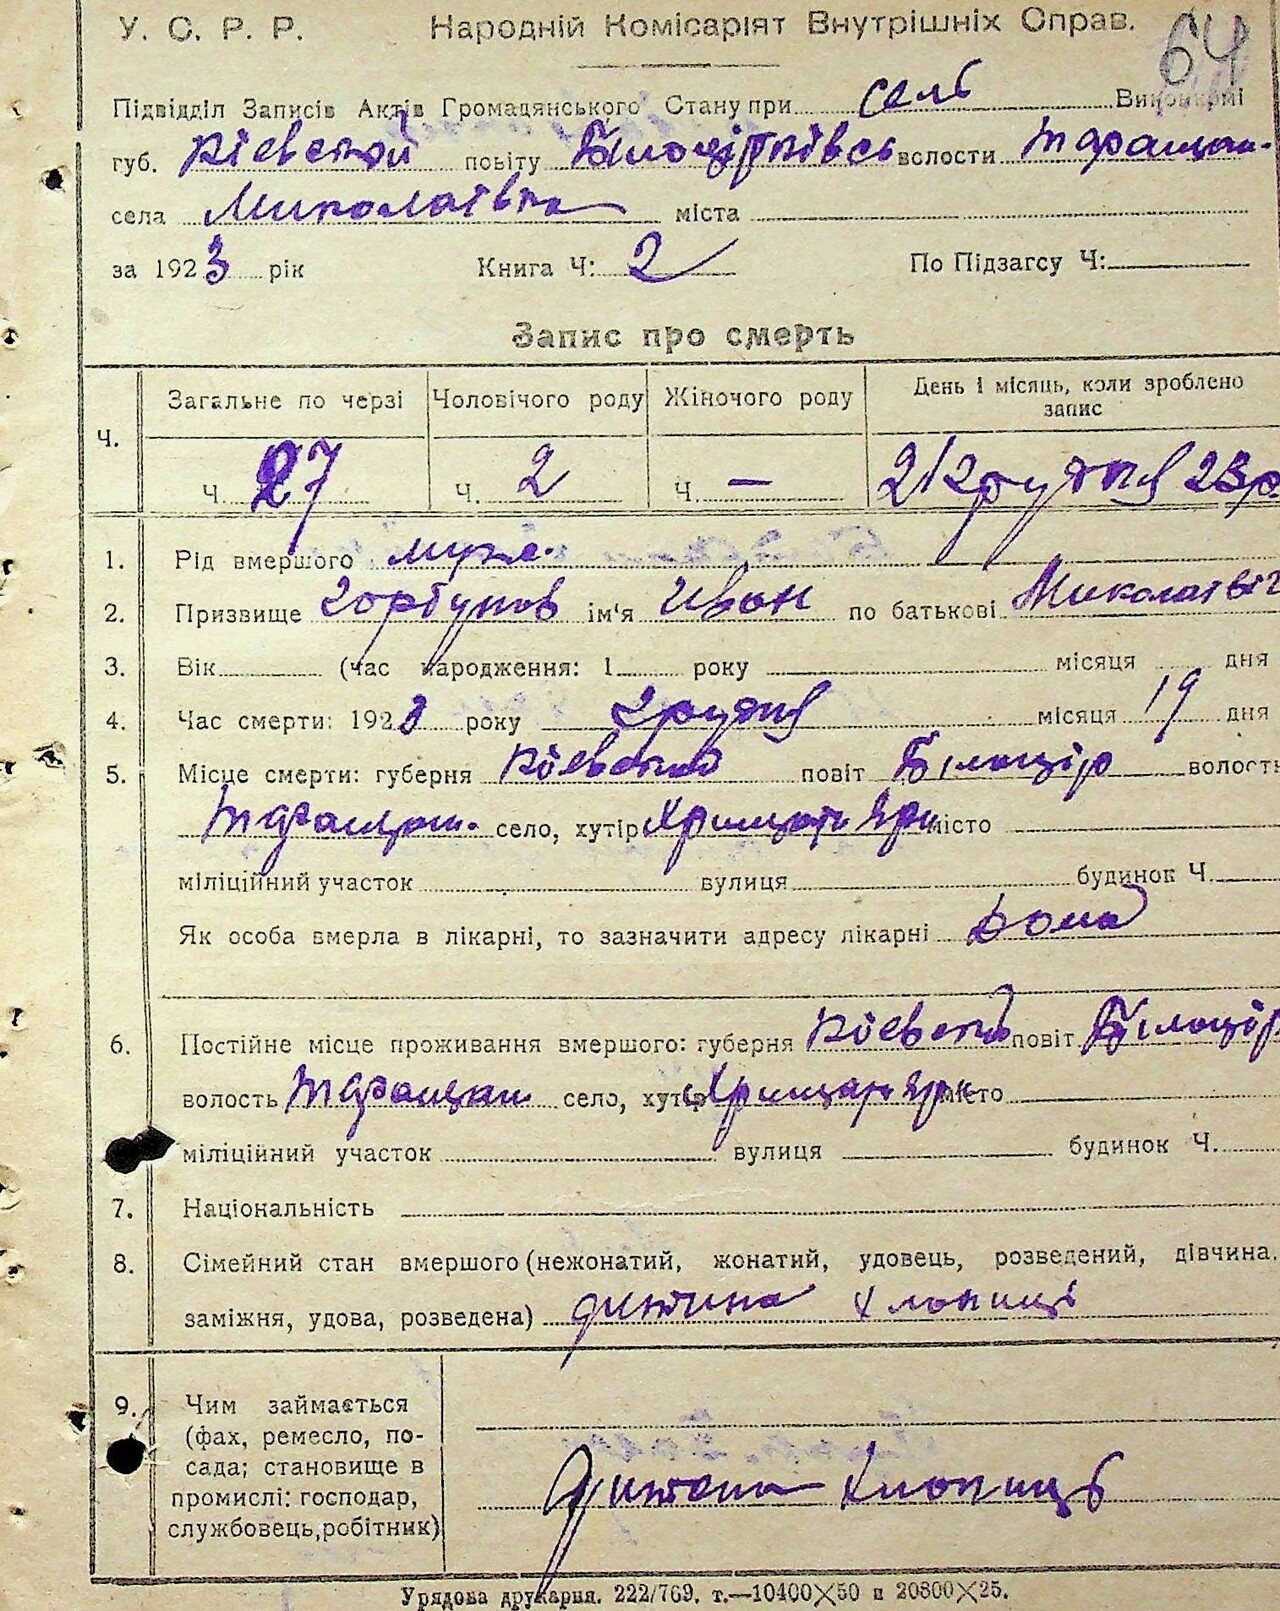 У. С. Р. Р. Народній Комісаріят Внутрішніх Справ. 64
Підвідділ Записів Актів Громадянського Стану при сель Виконкомі
губ. Кіевской повіту Білоцірківсь волости
села Миколаівка міста
за 1923 рік Книга Ч: 2 По Підзагсу Ч:
Запис про смерть
Ч. Загальне по черзі Чоловічого роду Жіночого роду День і місяць, коли зроблено запис
Ч. 27 Ч. 2 Ч. — 21 грудня 23 р
1. Рід вмершого муж.
2. Призвище Горбунов ім'я Иван по батькові Миколаевіч
3. Вік (час народження: 1 року місяця дня
4. Час смерти: 1923 року грудня місяця 19 дня
5. Місце смерти: губерня Кіевской повіт Білоцір волость
село, хутір місто
міліційний участок вулиця будинок Ч.
Як особа вмерла в лікарні, то зазначити адресу лікарні Дома
6. Постійне місце проживання вмершого: губерня Кіевськ повіт Білоцір
волость село, хутір місто
міліційний участок вулиця будинок Ч.
7. Національність
8. Сімейний стан вмершого (нежонатий, жонатий, удовець, розведений, дівчина.
заміжня, удова, розведена) дитина хлопиць
9. Чим займається
(фах, ремесло, по-
сада; становище в
промислі: господар,
службовець, робітник)
дитина хлопиць
Урядова друкарня. 222/769. т.—10400×50 и 20800×25.